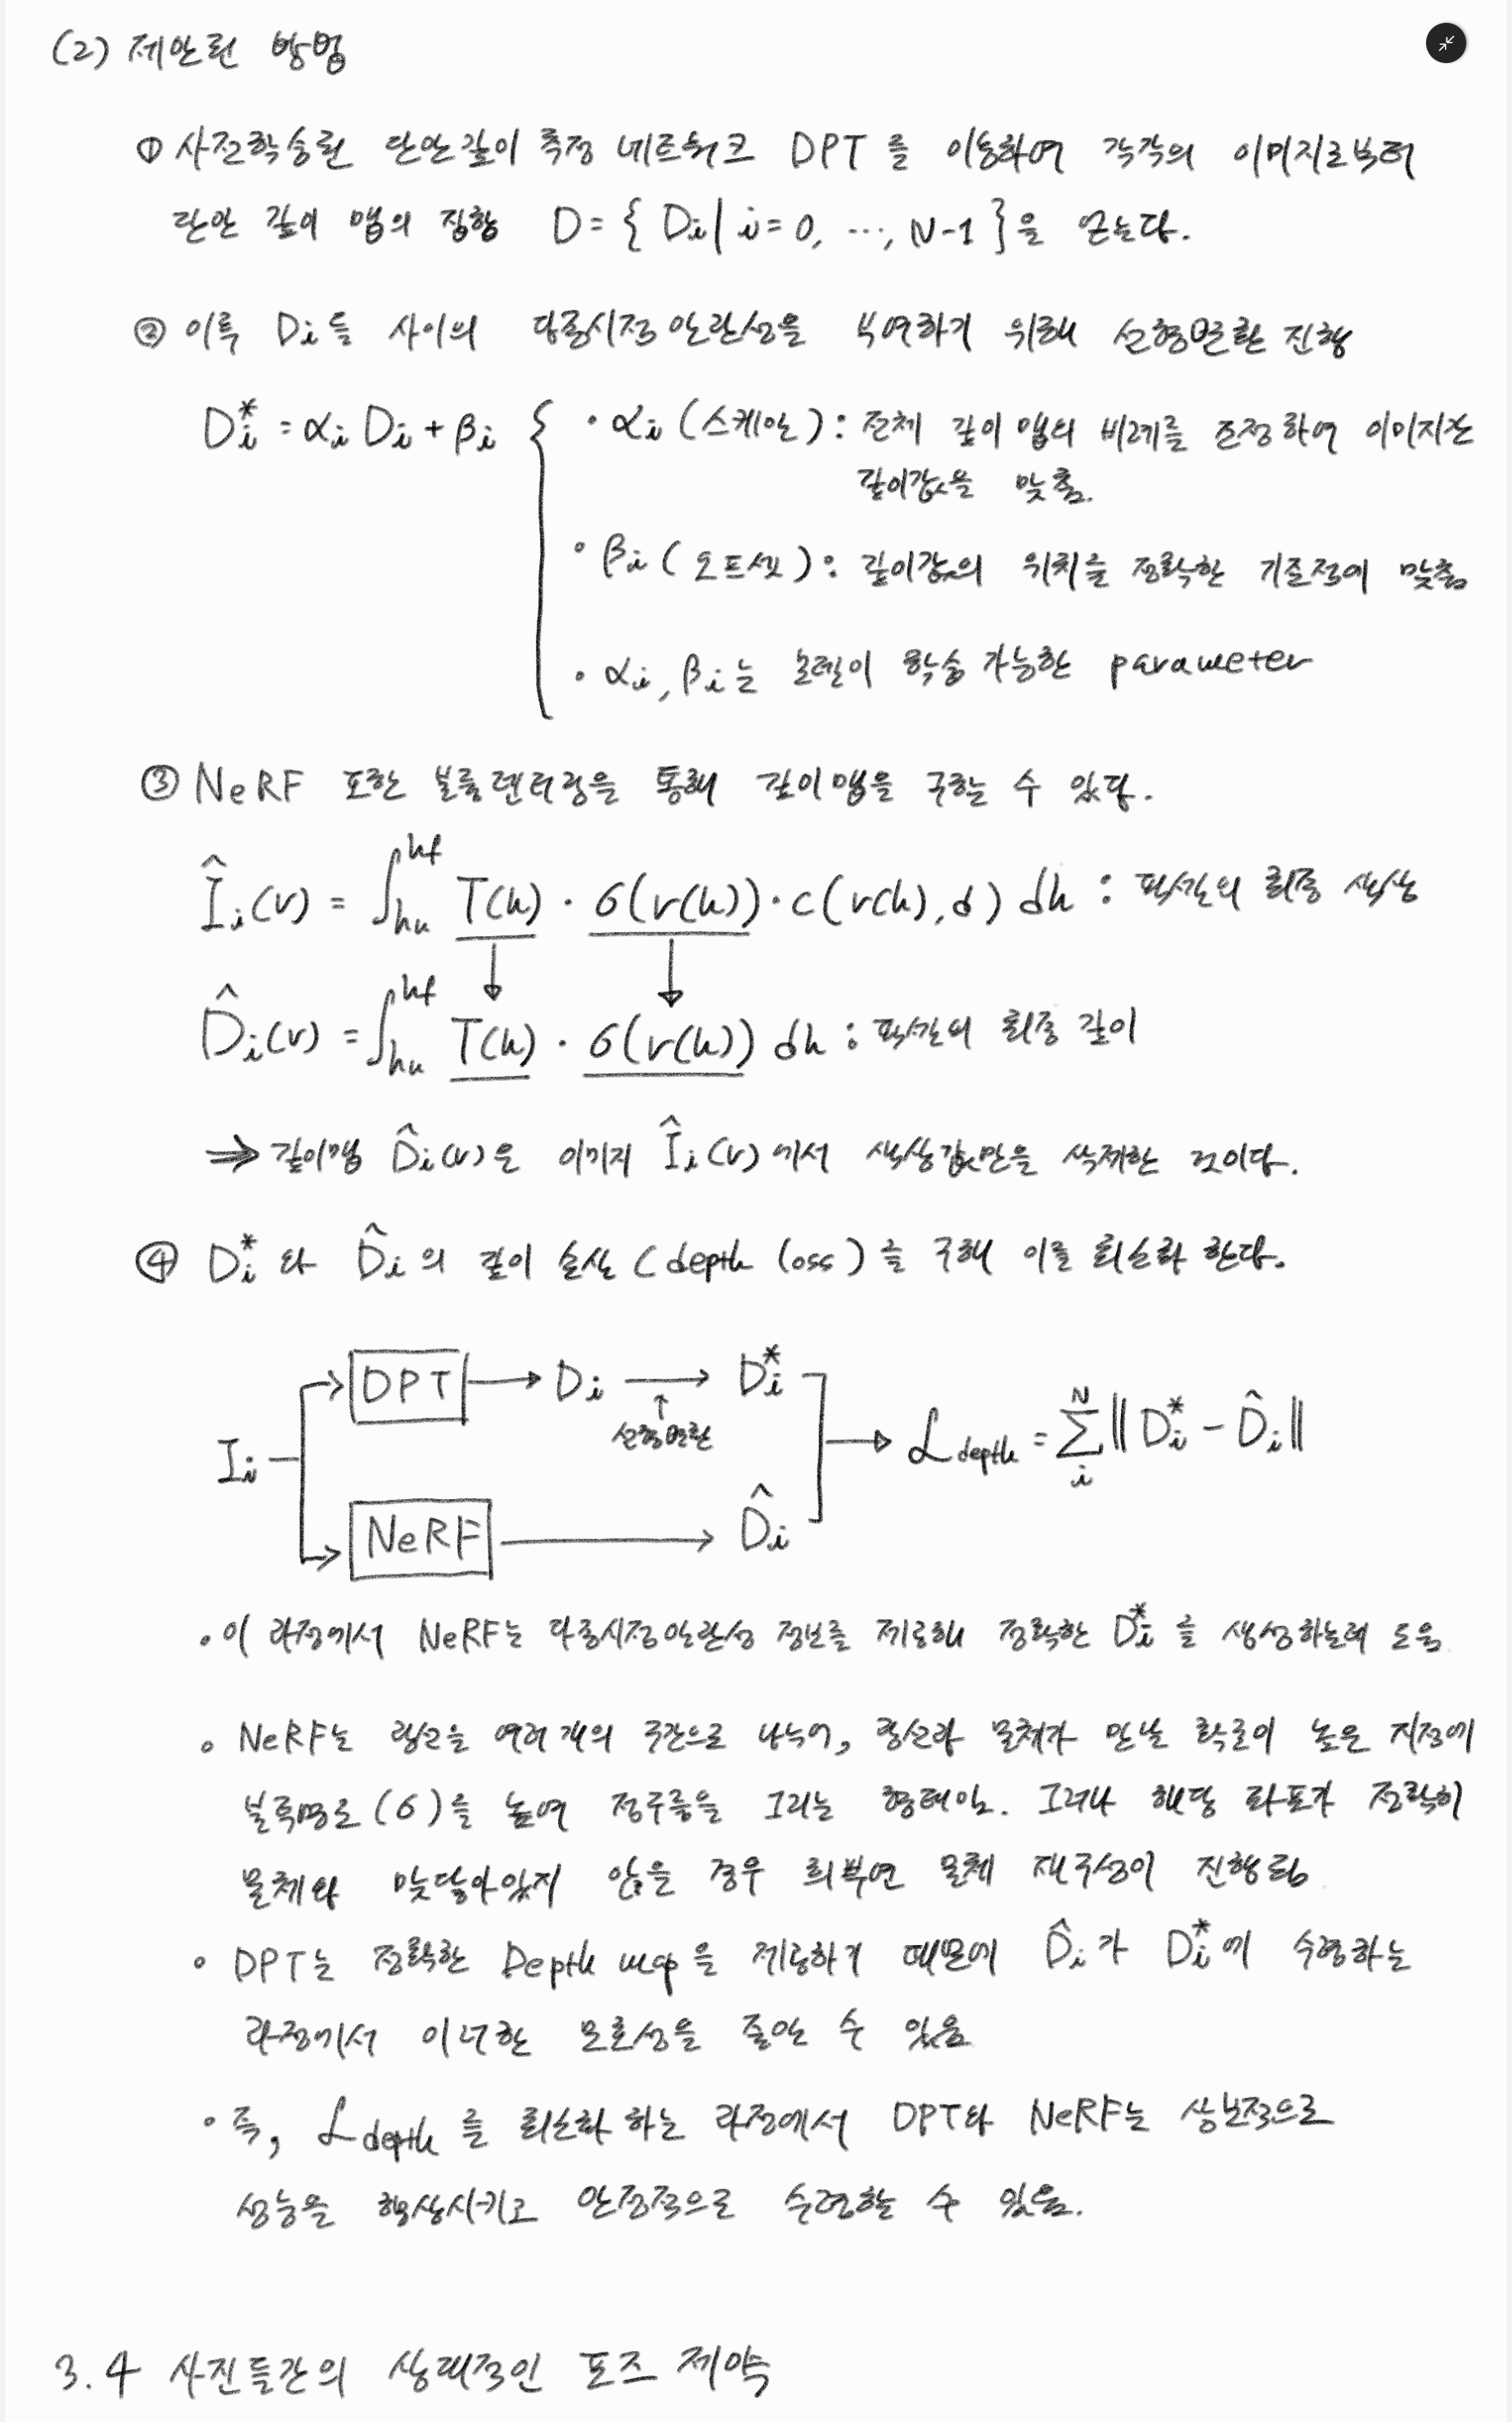 (2) 제안된 방법
① 사전학습된 단안깊이 측정 네트워크 DPT를 이용하여 각각의 이미지로부터
단안 깊이 맵의 집합 D = { Di | i = 0, ..., N-1 }을 얻는다.
② 이후 Di들 사이의 다중시점 일관성을 부여하기 위해 선형변환 진행
Di* = αi Di + βi
· αi (스케일) : 전체 깊이 맵의 비례를 조정하여 이미지간
깊이값을 맞춤.
· βi (오프셋) : 깊이값의 위치를 정확한 기준점에 맞춤
· αi, βi는 모델이 학습 가능한 parameter
③ NeRF 또한 볼륨렌더링을 통해 깊이맵을 구할 수 있다.
Îi(r) = ∫hn^hf T(h) · σ(r(h)) · c(r(h), d) dh : 픽셀의 최종 색상
D̂i(r) = ∫hn^hf T(h) · σ(r(h)) dh : 픽셀의 최종 깊이
⇒ 깊이맵 D̂i(r)은 이미지 Îi(r)에서 색상값만을 삭제한 것이다.
④ Di* 와 D̂i 의 깊이 손실 (depth loss)을 구해 이를 최소화 한다.
DPT → Di → Di*
선형변환
Ii
→ Ldepth = Σi^N || Di* - D̂i ||
NeRF → D̂i
· 이 과정에서 NeRF는 다중시점일관성 정보를 제공해 정확한 Di* 를 생성하는데 도움
· NeRF는 광선을 여러 개의 구간으로 나누어, 광선과 물체가 만날 확률이 높은 지점에
볼륨밀도(σ)을 높여 점구름을 그리는 형태임. 그러나 해당 좌표가 정확히
물체와 맞닿아있지 않을 경우 희뿌연 물체 재구성이 진행됨
· DPT는 정확한 Depth map을 제공하기 때문에 D̂i가 Di*에 수렴하는
과정에서 이러한 모호성을 줄일 수 있음
· 즉, Ldepth 를 최소화 하는 과정에서 DPT와 NeRF는 상보적으로
성능을 향상시키고 안정적으로 수렴할 수 있음.
3.4 사진들간의 상대적인 포즈 제약